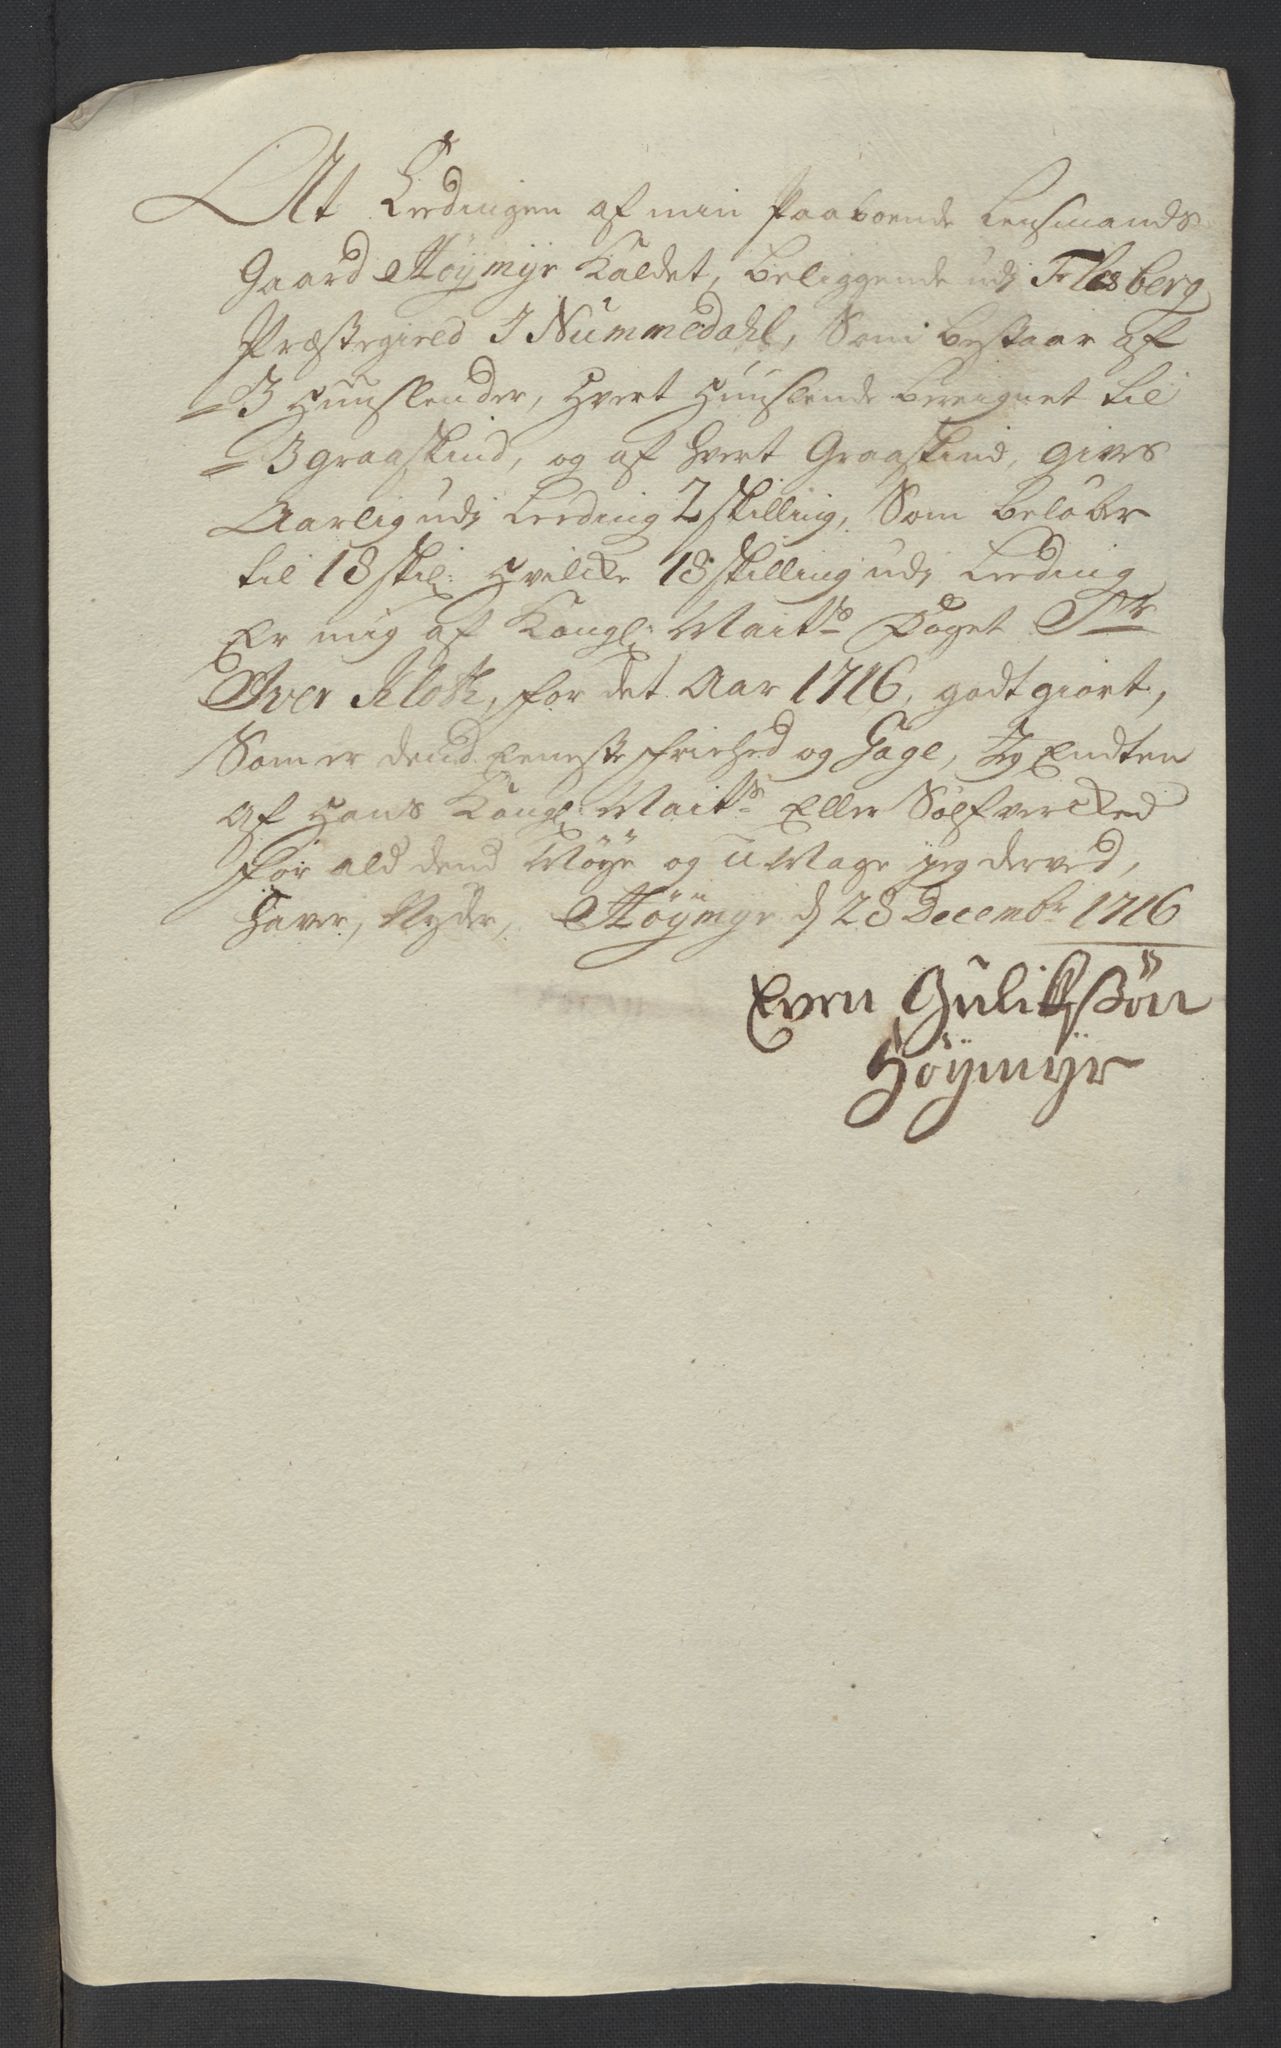 At Leedingen af min Paaboende Lensmands
Gaard Høÿmÿr Kaldet, beliggende udj Flesberg
Præstegield I Nummedahl, Som bestaar af
3 Huuslender, Hvert Huuslende bereignet til
3 graaskind, og af hvert Graaskind, gives
Aarlig udj Leeding 2 skilling, Som beløber
til 18 skil: Hvilcke 18 skilling udj Leeding
Er mig af Kongl: Maitts Foget Sr
Iver Klotz, for det Aar 1716, godtgiort,
Som er dend Eeneste frihed og Gage, Jeg Endten
af Hans Kongl: Maitts Eller Sølfvercked
for ald dend Møÿe og uMage jeg derved,
haver, Nyder, Høÿmyr d 28 Decembr 1716
Even Gulichssøn
Höÿmÿr